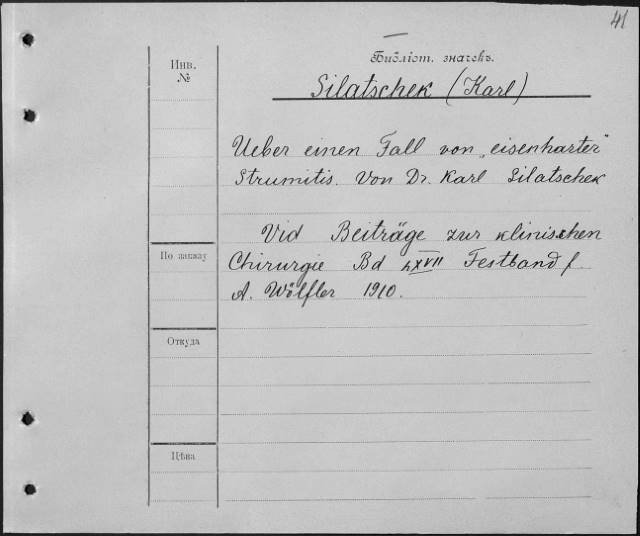 41
Библіот. значекъ.
Инв.
№
Silatschek (Karl)
Ueber einen Fall von „eisenharter“
Strumitis. Von Dr. Karl Silatschek
Vid Beiträge zur klinischen
По заказу
Chirurgie Bd LXVII Festband f.
A. Wölfler 1910.
Откуда
Цѣна